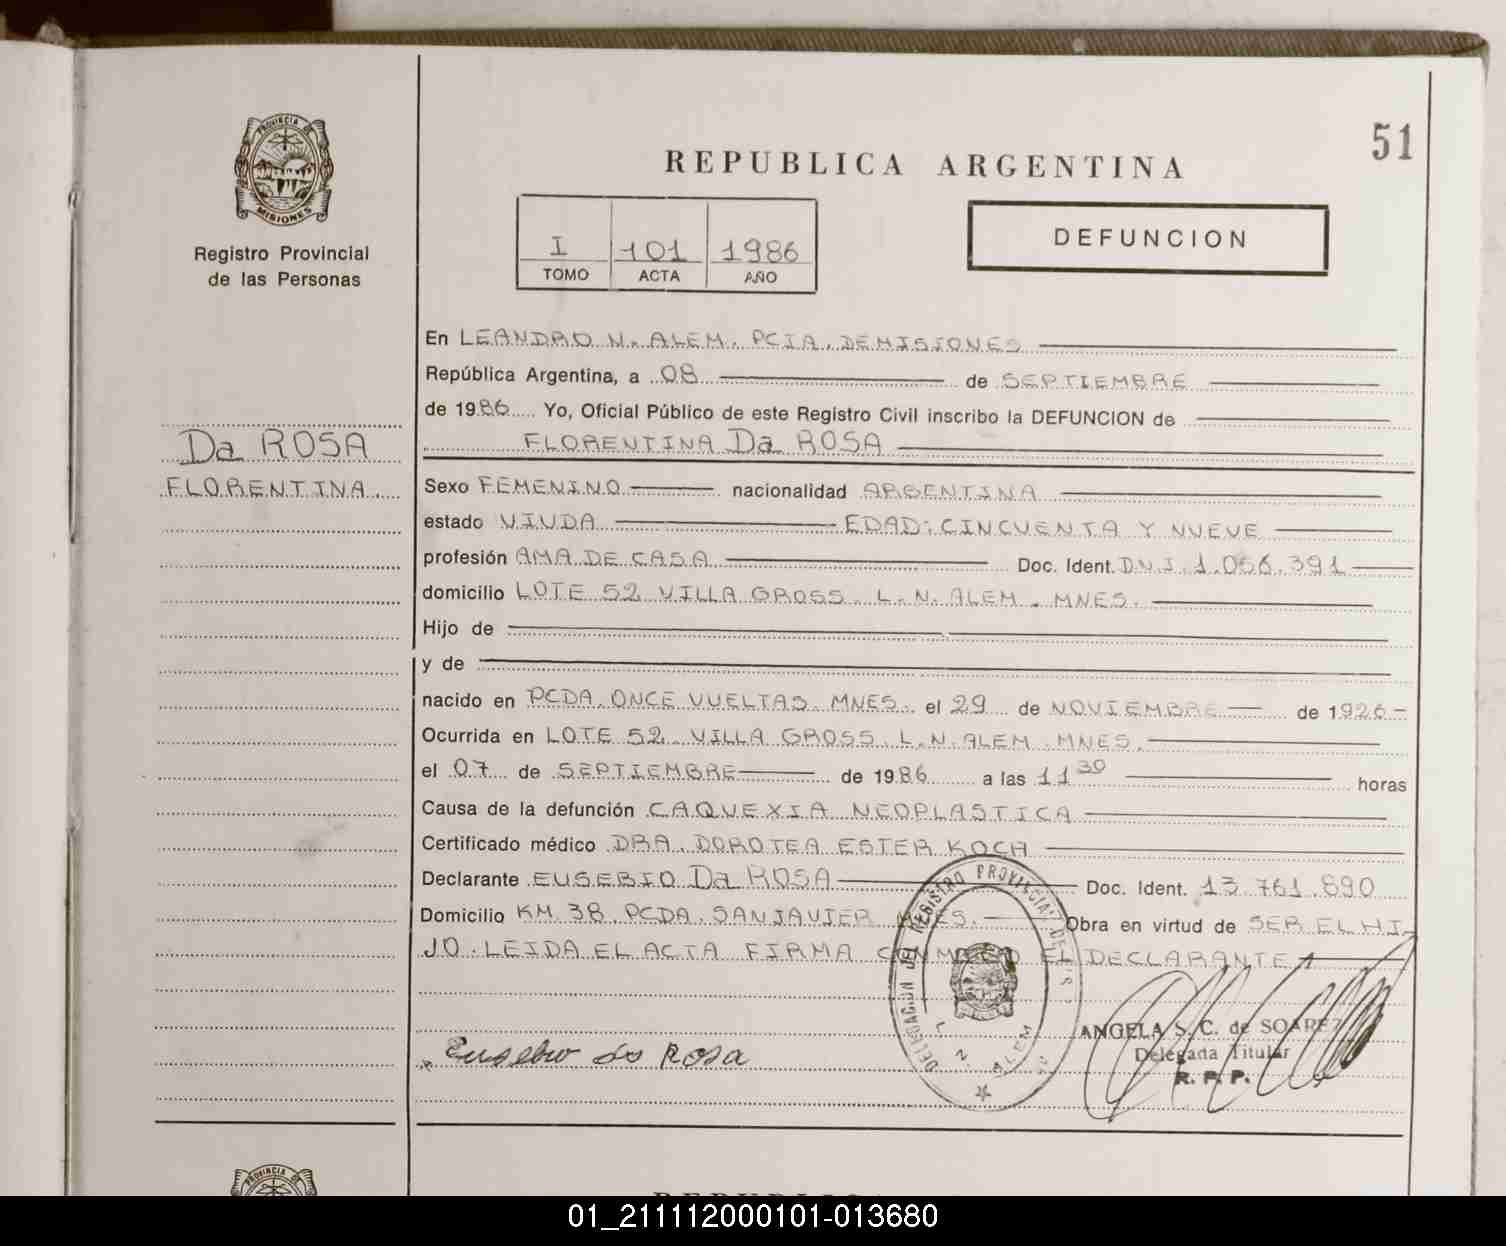 51
REPUBLICA ARGENTINA
PROVINCIA DE
MISIONES
Registro Provincial
de las Personas
I 101 1986
TOMO ACTA AÑO
DEFUNCION
Da ROSA
FLORENTINA.
En LEANDRO N. ALEM. PCIA. DE MISIONES
República Argentina, a 08 de SEPTIEMBRE
de 1986 Yo, Oficial Público de este Registro Civil inscribo la DEFUNCION de
FLORENTINA Da ROSA
Sexo FEMENINO nacionalidad ARGENTINA
estado VIUDA EDAD: CINCUENTA Y NUEVE
profesión AMA DE CASA Doc. Ident. D.N.I. 1.056.391
domicilio LOTE 52 VILLA GROSS. L.N. ALEM. MNES.
Hijo de
y de
nacido en PCDA. ONCE VUELTAS. MNES. el 29 de NOVIEMBRE de 1926
Ocurrida en LOTE 52 VILLA GROSS. L.N. ALEM. MNES.
el 07 de SEPTIEMBRE de 1986 a las 11 30 horas
Causa de la defunción CAQUEXIA NEOPLASTICA
Certificado médico DRA. DOROTEA ESTER KOCH
Declarante EUSEBIO Da ROSA Doc. Ident. 13.761.890
Domicilio KM. 38 PCDA. SAN JAVIER MNES. Obra en virtud de SER EL HI-
JO. LEIDA EL ACTA FIRMA CONMIGO EL DECLARANTE
DELEGACION DEL REGISTRO PROVINCIAL DE
L. N. ALEM
Eusebio da Rosa
ANGELA S. C. de SOAREZ
Delegada Titular
R. P. P.
PROVINCIA DE
01_211112000101-013680